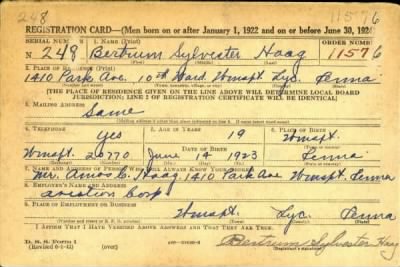 248 11576
REGISTRATION CARD—(Men born on or after January 1, 1922 and on or before June 30, 1924
SERIAL NUMBER 1. NAME (Print) ORDER NUMBER
N 248 Bertrum Sylvester Haag 11576
(First) (Middle) (Last)
2. PLACE OF RESIDENCE (Print)
1410 Park Ave. 10th Ward Wmspt. Lyc. Penna
(Number and street) (Town, township, village, or city) (County) (State)
[THE PLACE OF RESIDENCE GIVEN ON THE LINE ABOVE WILL DETERMINE LOCAL BOARD
JURISDICTION; LINE 2 OF REGISTRATION CERTIFICATE WILL BE IDENTICAL]
3. MAILING ADDRESS
Same
[Mailing address if other than place indicated on line 2. If same insert word same]
4. TELEPHONE 5. AGE IN YEARS 6. PLACE OF BIRTH
yes 19 Wmspt.
DATE OF BIRTH
Wmspt. 20770 June 14 1923 Penna
(Exchange) (Number) (Mo.) (Day) (Yr.) (State or country)
7. NAME AND ADDRESS OF PERSON WHO WILL ALWAYS KNOW YOUR ADDRESS
Mr. Amos C. Haag 1410 Park Ave Wmspt. Penna
8. EMPLOYER'S NAME AND ADDRESS
Aviation Corp
9. PLACE OF EMPLOYMENT OR BUSINESS
Wmspt. Lyc. Penna
(Number and street or R. F. D. number) (Town) (County) (State)
I AFFIRM THAT I HAVE VERIFIED ABOVE ANSWERS AND THAT THEY ARE TRUE.
D. S. S. Form 1
(Revised 6-1-42) (over) Bertrum Sylvester Haag